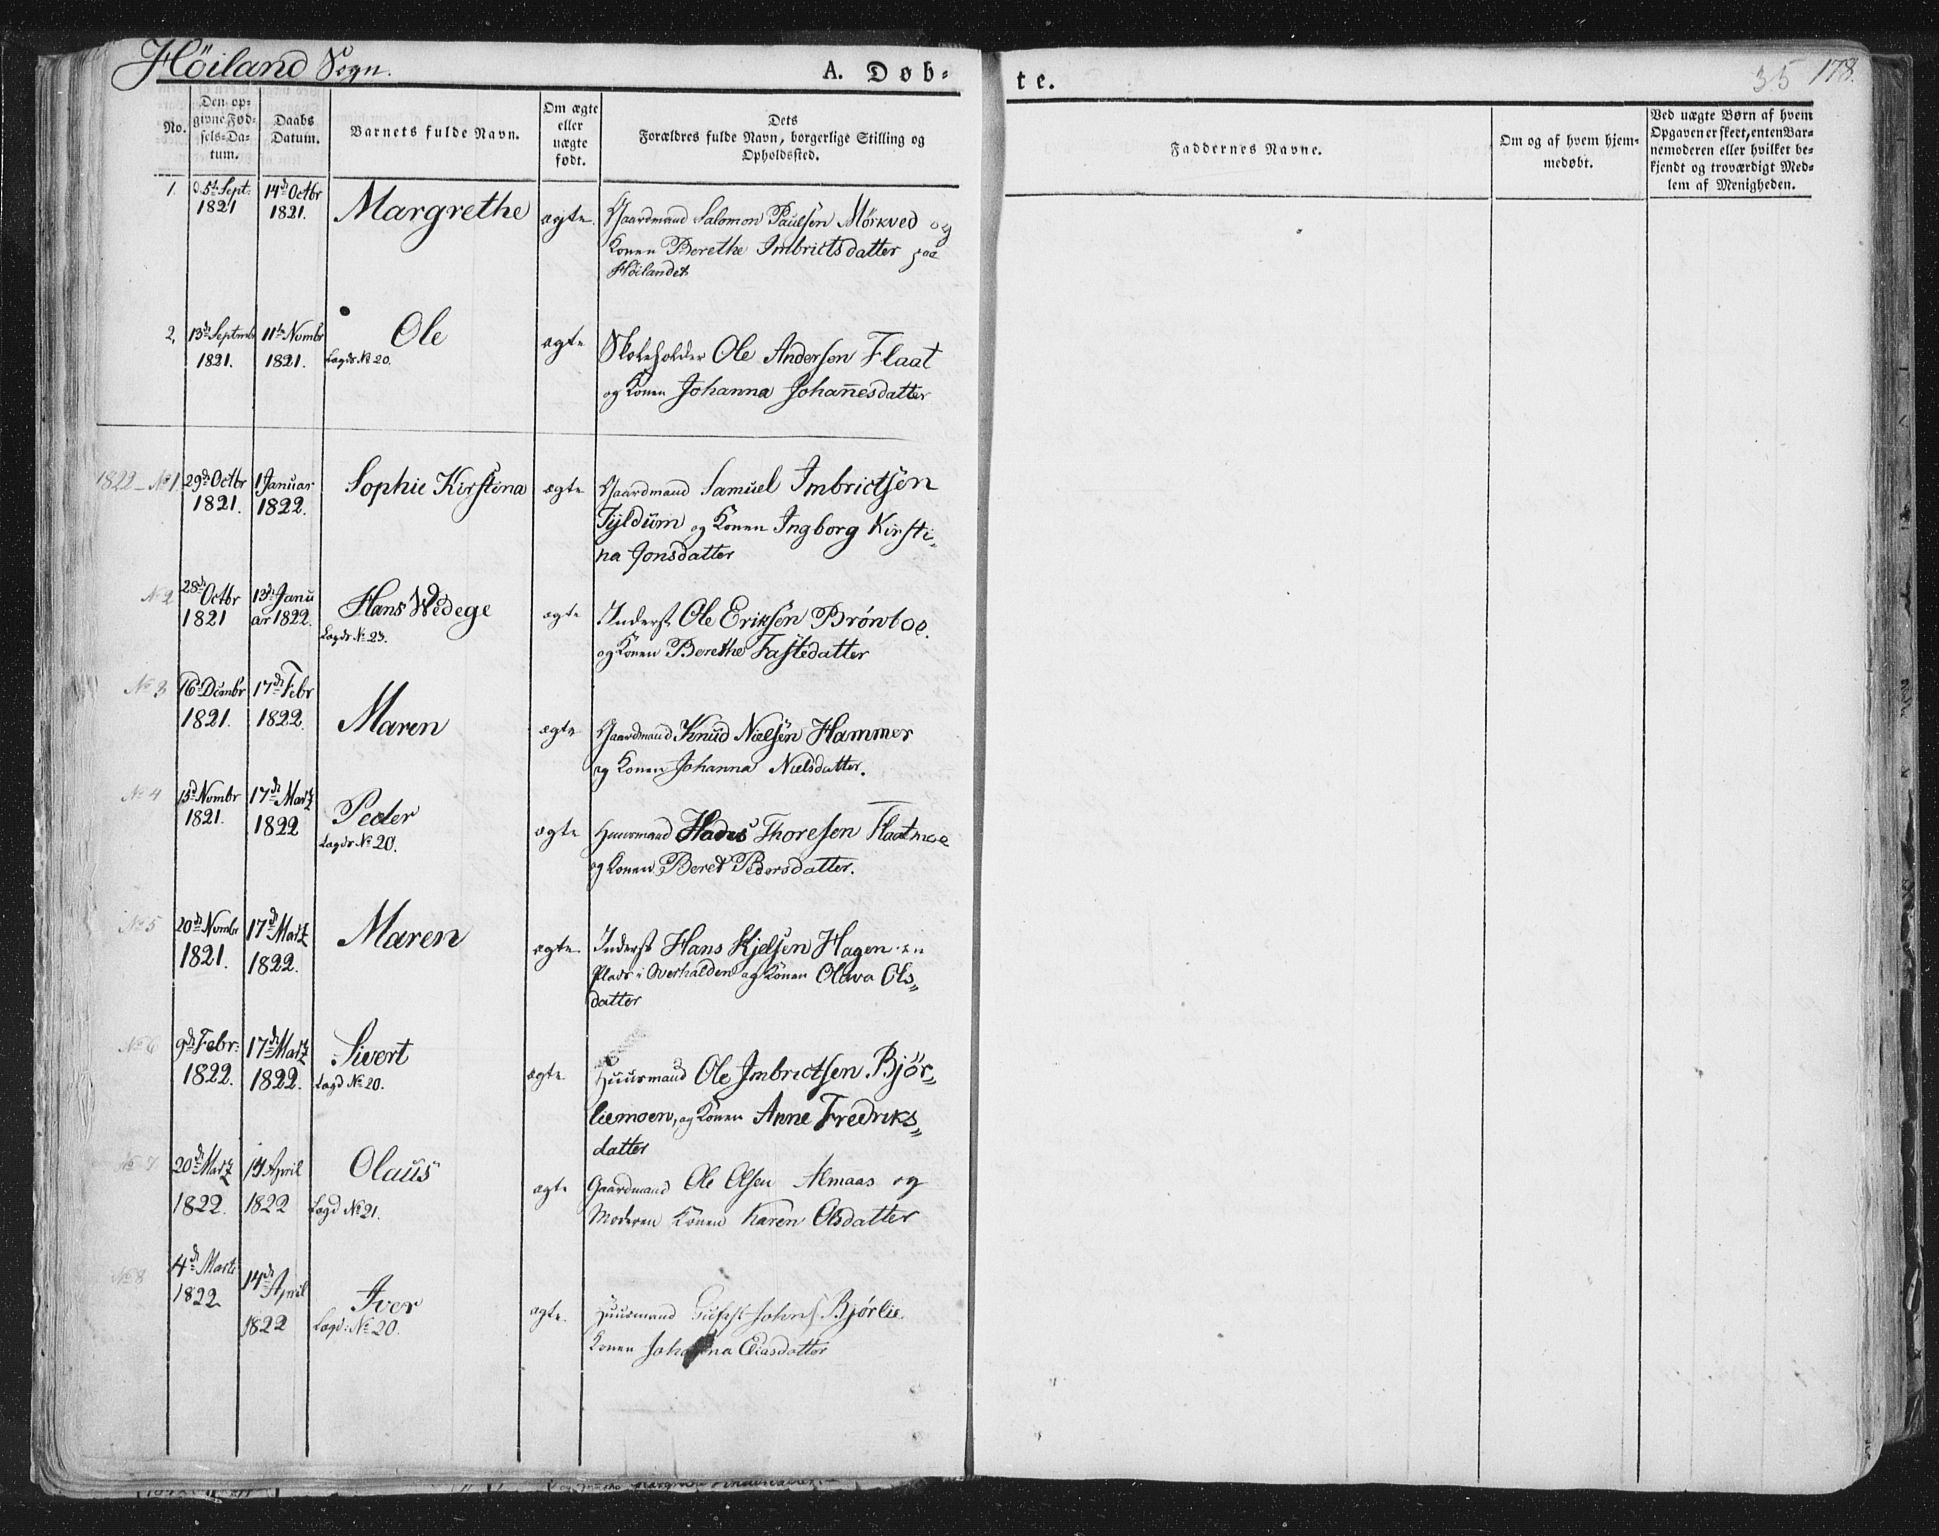 Höiland Sogn.
A. Døb-
te.
35 178.
No.
Den op-
givne Fød-
sels-Da-
tum.
Daabs
Datum.
Barnets fulde Navn.
Om ægte
eller
uægte
født.
Dets
Forældres fulde Navn, borgerlige Stilling og
Opholdssted.
Faddernes Navne.
Om og af hvem hjem-
medøbt.
Ved uægte Børn af hvem
Opgaven er skeet, enten Bar-
nemoderen eller hvilket be-
kjendt og troværdigt Med-
lem af Menigheden.
1. 5t Sept: 14d Octbr
1821 1821. Margrethe ægte. Gaardmand Salomon Paulsen Mörkved og
Konen Berethe Imbrictsdatter paa
Höilandet
2, 13d Septmbr 11te Novmbr Ole ægte Skoleholder Ole Andersen Flaat
1821. 1821. Lægds No 20.
og Konen Johanna Johannesdatter
1822 - No 1. 29d Octbr 1 Januar Sophie Kirstina ægte Gaardmand Samuel Imbrictsen
1821. 1822. Tyldum og Konen Ingborg Kirsti-
na Jonsdatter
No 2 28d Octbr 13d Janu
1821 ar 1822. Hans Wedege ægte Inderst Ole Eriksen Bröntoe.
Lægds No 23. og Konen Berethe Fastedatter
No 3 16d Decmbr 17d Febr
1821. 1822. Maren ægte Gaardmand Knud Nielsen Hammer
og Konen Johanna Nielsdatter.
No 4 15d Novmbr 17d Martz
1821. 1822 Peder ægte Huusmand Thoresen Flaatmoe
Lægds No 20. og Konen Beret Pedersdatter.
No 5 20d Novmbr 17d Martz
1821. 1822. Maren ægte Inderst Hans Kjelsen Hagen en
Plads i Overhalden og Konen Olava Ols-
datter
No 6 9d Febr: 17d Martz Sivert
1822. 1822. Lægd No 20. ægte Huusmand Ole Imbrictsen Bjør-
liemoen, og Konen Anne Fredriks-
datter
No 7 20d Martz 14 April Olaus
1822. 1822 Lægd No 21. ægte Gaardmand Ole Olsen Almaas og
Moderen Konen Karen Olsdatter
No 8 4d Marts 14d April
1822. 1822 Iver
Lægd: No 20. ægte. Huusmand Johns Bjørlie.
Konen Johanna Eliasdatter